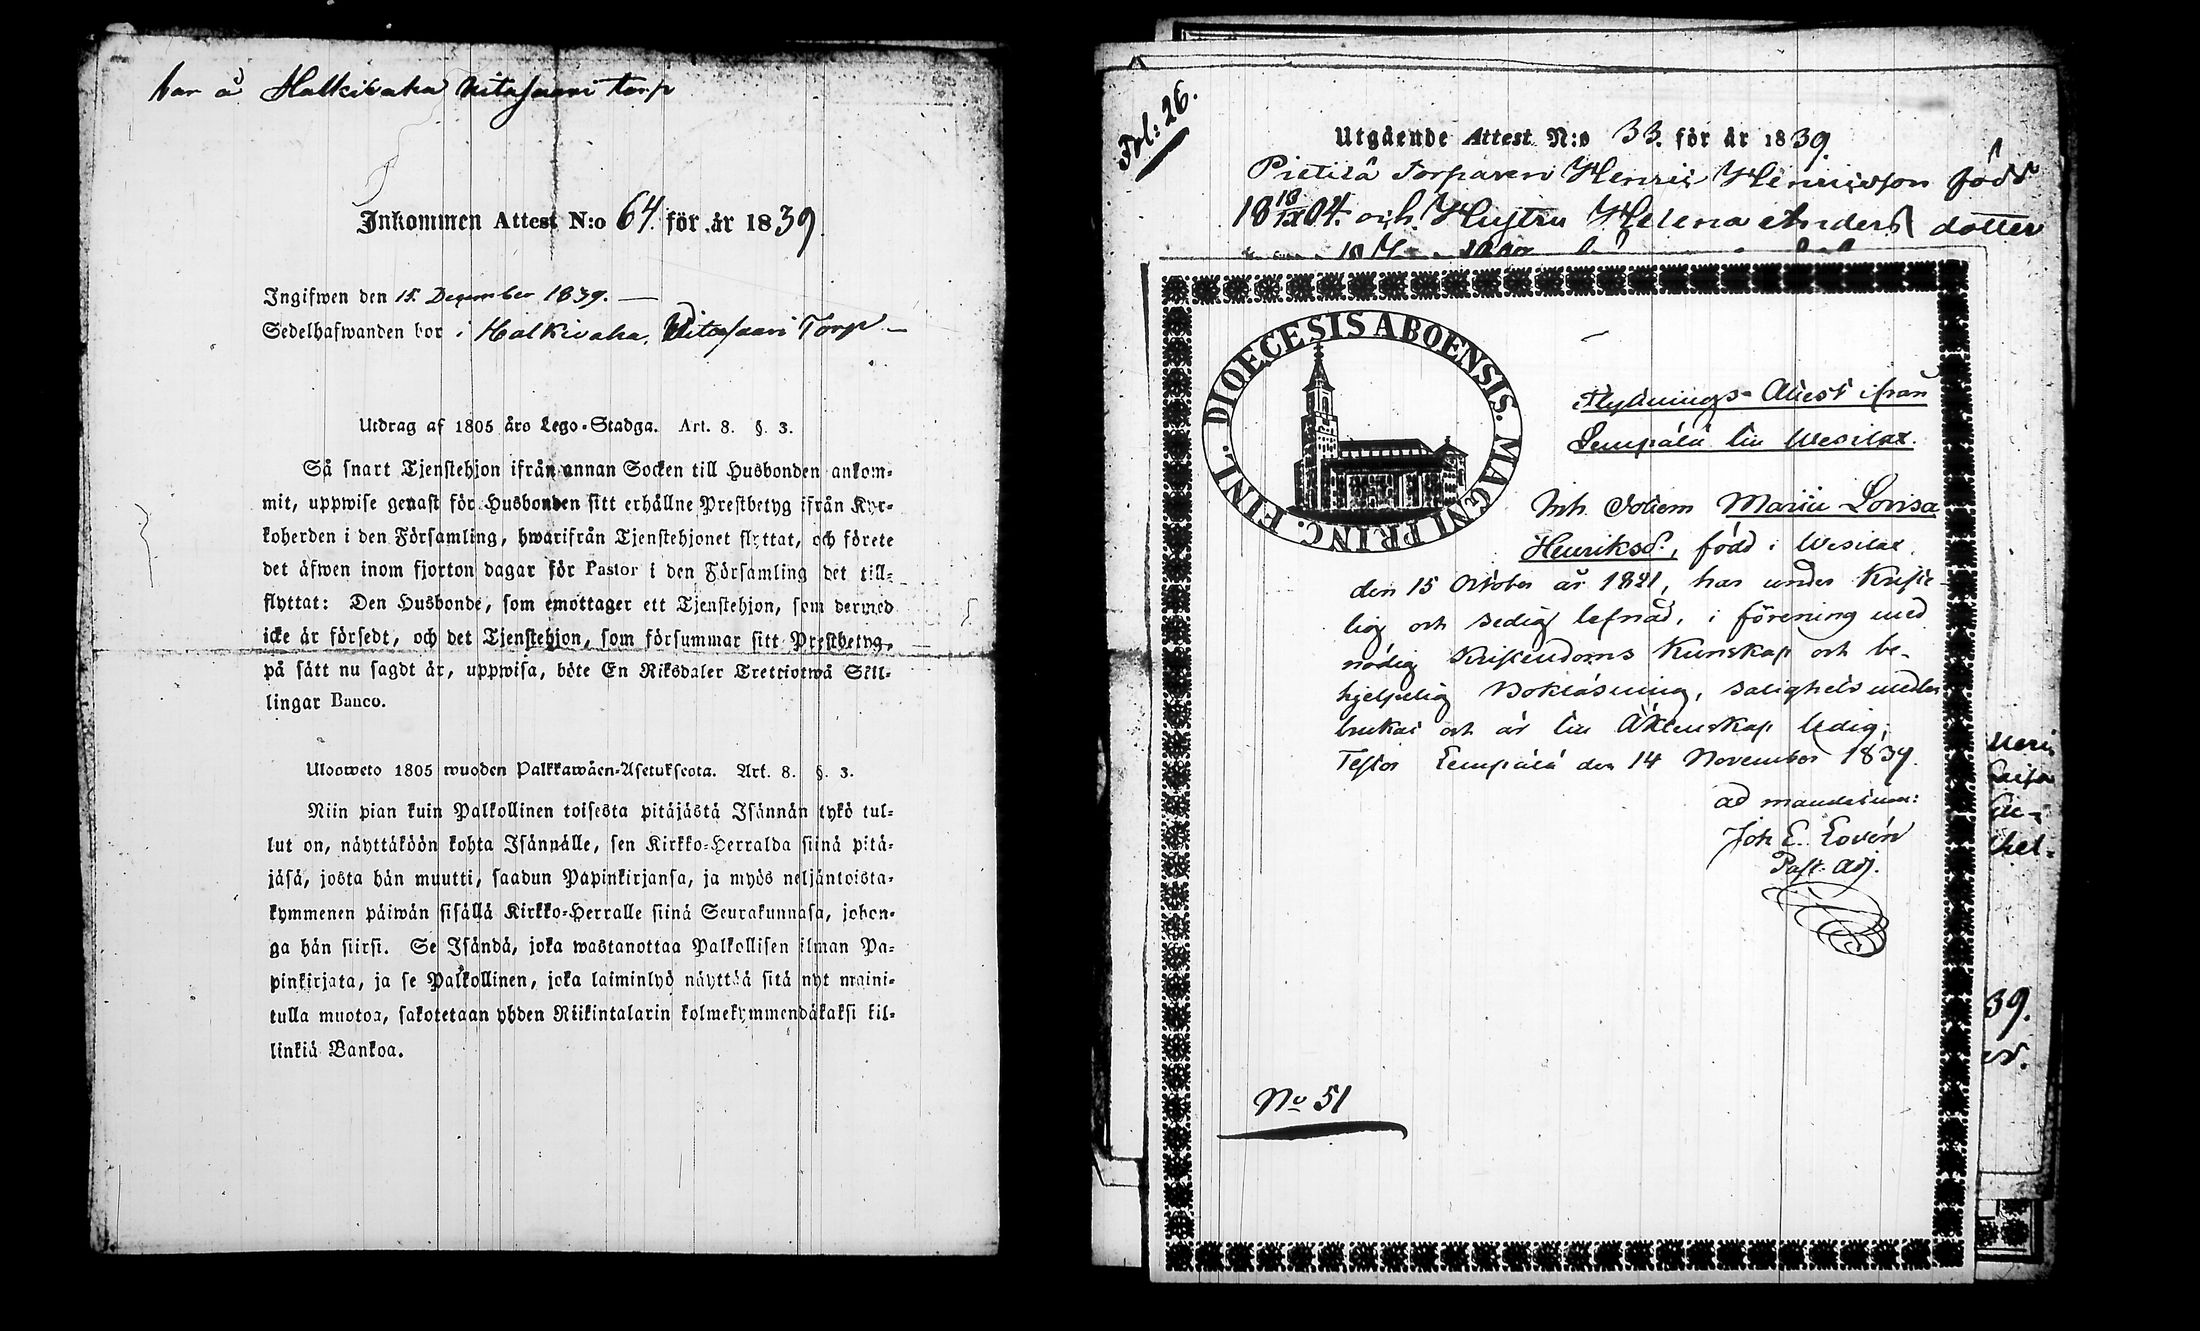 bor å Halkivaha Uitasaari torp
Inkommen Attest N:o 64. för år 1839.
Ingifwen den 15. December 1839. —
Sedelhafwanden bor i Halkivaha, Uitasaari Torp —
Utdrag af 1805 års Lego-Stadga. Art. 8. §. 3.
Så snart Tjenstehjon ifrån annan Socken till Husbonden ankom-
mit, uppwise genast för Husbonden sitt erhållne Prestbetyg ifrån Kyr-
koherden i den Församling, hwarifrån Tjenstehjonet flyttat, och förete
det äfwen inom fjorton dagar för Pastor i den Församling det till-
flyttat: Den Husbonde, som emottager ett Tjenstehjon, som dermed
icke är försedt, och det Tjenstehjon, som försummar sitt Prestbetyg,
på sätt nu sagdt är, uppwisa, böte En Riksdaler Trettiotwå Skil-
lingar Banco.
Ulosweto 1805 wuoden Palkkawäen-Asetuksesta. Art. 8. §. 3.
Niin pian kuin Palkollinen toisesta pitäjästä Isännän tykö tul-
lut on, näyttäköön kohta Isännälle, sen Kirkko-Herralda siinä pitä-
jäsä, josta hän muutti, saadun Papinkirjansa, ja myös neljäntoista-
kymmenen päiwän sisällä Kirkko-Herralle siinä Seurakunnasa, johon-
ga hän siirsi. Se Isändä, joka wastanottaa Palkollisen ilman Pa-
pinkirjata, ja se Palkollinen, joka laiminlyö näyttää sitä nyt maini-
tulla muotoa, sakotetaan yhden Riikintalarin kolmekymmendäkaksi kil-
linkiä Bankoa.
Fol: 26.
Utgående Attest N:o 33. för år 1839.
Pietilä Torparen Henric Henricsson född
18 18/IX 04. och Hustru Helena Anders dotter
DIOECESIS ABOENSIS. MAGNI PRINC. FINL.
Flyttnings-Attest ifrån
Lempälä till Wesilax.
Inh. Dottern Maria Lovisa
Henriksd., född i Wesilax
den 15 October år 1821, har under Kriste-
lig och sedig lefnad, i förening med
nödig Kristendoms Kunskap och be-
hjelplig Bokläsning, salighetsmedlen
brukat och är till Äktenskap ledig;
Testor Lempälä den 14 November 1839.
ad mandatum:
Joh E. Lovén
Past. Adj.
No 51
39.